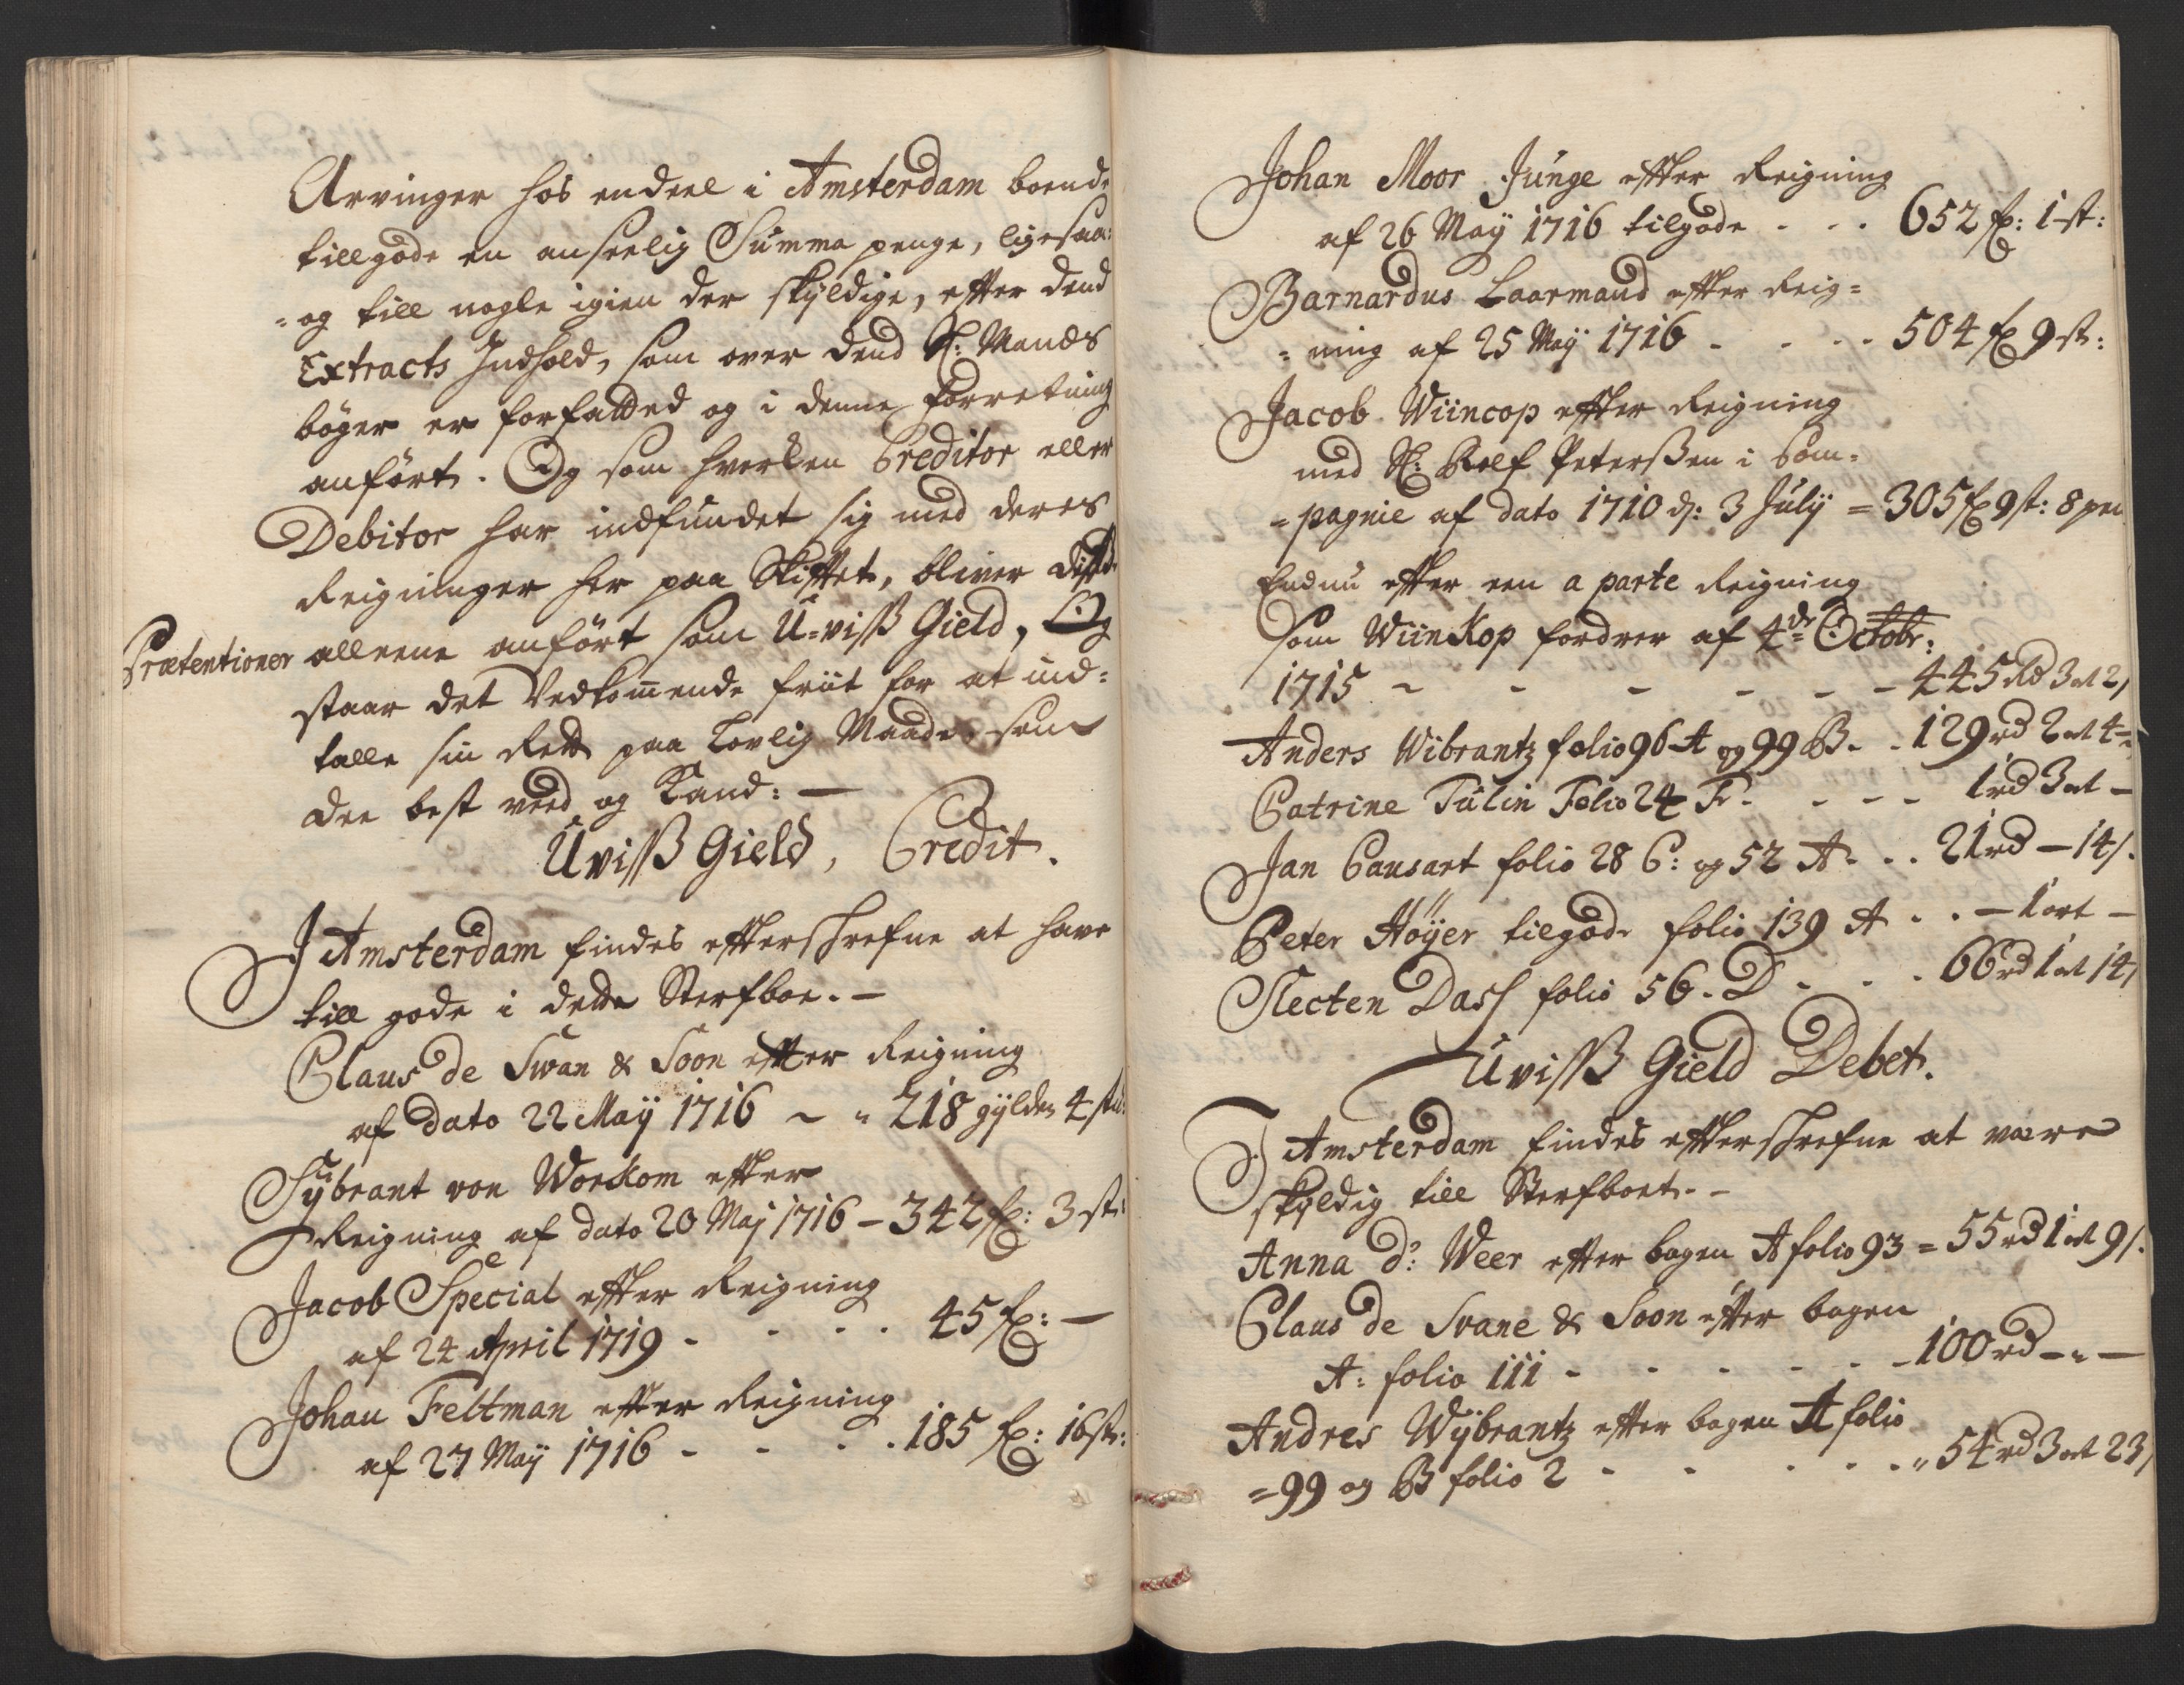 Arvinger hos endeel i Amsterdam boende
tillgode en anseelig Summa penge, ligesaa=
=og till nogle igien der skÿldige, efter dend
Extracts Indhold, som over dend Sl: Mands
bøger er forfatted og i denne forretning
anført. Og som hverken Creditor eller
Debitor har indfundet sig med deres
Reigninger her paa Skiftet, bliver disse
Prætentioner alleene anført som U=viss Gield, Og
staar det Vedkommende friit for at ind=
talle sin Rett paa Lovlig Maade, som
dee best veed og Kand: —
Uviss Gield, Credit.
I Amsterdam findes efterschrefne at have
till gode i dette Sterfboe. —
Claus de Swan & Soon efter Reigning
af dato 22 Maÿ 1716 ~ " 218 gÿlden 4 stu:
Sÿbrant von Workom efter
Reigning af dato 20 Maj 1716 — 342 f: 3 st:
Jacob Special efter Reigning
af 24 April 1719 - - - - 45 f: —
Johan Feltman efter Reigning
af 27 Maÿ 1716 - - - - 185 f: 16 st:
Johan Moor Junge efter Reigning
af 26 Maÿ 1716 tilgode - - - 652 f: 1 st:
Barnardus Laarmand efter Reig=
=ning af 25 Maÿ 1716 - - - - 504 f 9 st:
Jacob Wiincop efter Reigning
med Sl: Rolf Peterssen i Com=
=pagnie af dato 1710 d: 3 Julÿ = 305 f 9 st: 8 pen
Endnu efter een a parte Reigning
Som Wiinkop fordrer af 4de Octobr:
1715 ~ - - - - - 445 Rd 3 ort 2 s
Anders Wibrantz folio 96 A og 99 B. - 129 rd 2 ort 4 s
Catrine Tulin Folio 24 F. - - - - 1 rd 3 ort —
Jan Causart folio 28 C: og 52 A. - - 21 rd — 14 s.
Peter Høÿer tilgode folio 139 A - - — 1 ort —
Slecten Dass folio 56. D - - - - 66 rd 1 ort 14 s
Uviss Gield Debet.
I Amsterdam findes efterschrefne at være
skÿldig till Sterfboet. -
Anna d: Weer efter bogen A folio 93 = 55 rd 1 ort 9 s.
Claus de Svane & Soon efter bogen
A: folio 111 - - - - - - 100 rd — " —
Andres Wÿbrantz efter bogen A folio
=99 og B folio 2 - - - - - " 54 rd 3 ort 23 s